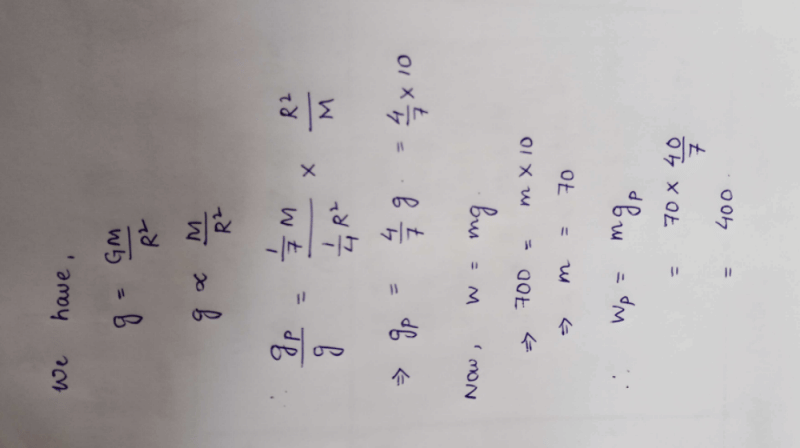 We have,
g = GM/R²
g ∝ M/R²
∴ gₚ/g = (1/7 M)/(1/4 R²) × R²/M
⇒ gₚ = 4/7 g. = 4/7 × 10
Now, W = mg.
⇒ 700 = m × 10
⇒ m = 70
∴ Wₚ = mgₚ
= 70 × 40/7
= 400.